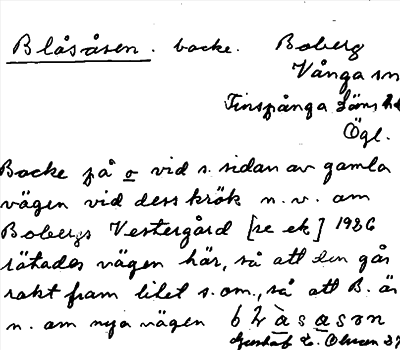 Blåsåsen. backe. Boberg
Vånga sn
Finspånga läns hd
Ögl.
Backe på o vid s. sidan av gamla
vägen vid dess krök n.v. om
Bobergs Vestergård [se ek] 1926
rätades vägen här, så att den går
rakt fram litet s. om, så att B. är
n. om nya vägen
Gustaf E. Olsson 27